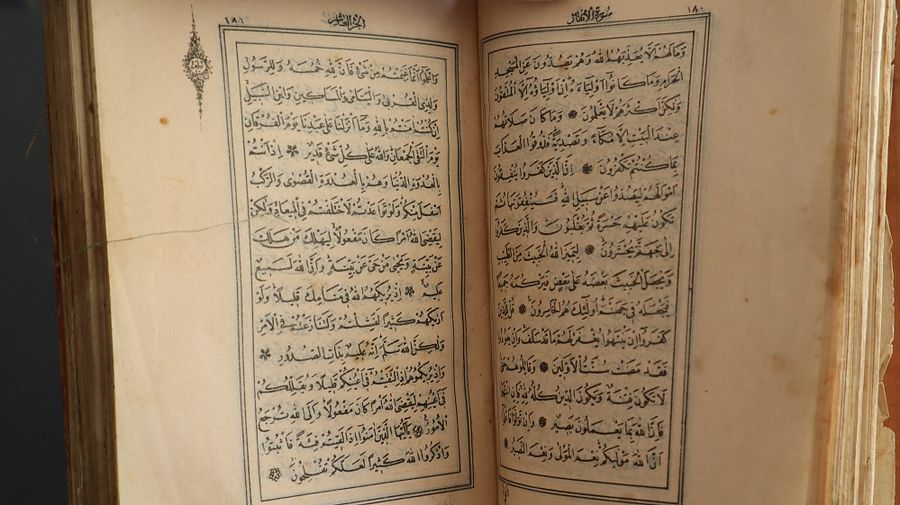 ١٨٠
سورة الأنفال
وَمَا لَهُمْ أَلَّا يُعَذِّبَهُمُ اللهُ وَهُمْ يَصُدُّونَ عَنِ الْمَسْجِدِ
الْحَرَامِ وَمَا كَانُوا أَوْلِيَاءَهُ إِنْ أَوْلِيَاؤُهُ إِلَّا الْمُتَّقُونَ
وَلَكِنَّ أَكْثَرَهُمْ لَا يَعْلَمُونَ وَمَا كَانَ صَلَاتُهُمْ
عِنْدَ الْبَيْتِ إِلَّا مُكَاءً وَتَصْدِيَةً فَذُوقُوا الْعَذَابَ
بِمَا كُنْتُمْ تَكْفُرُونَ إِنَّ الَّذِينَ كَفَرُوا يُنْفِقُونَ
أَمْوَالَهُمْ لِيَصُدُّوا عَنْ سَبِيلِ اللهِ فَسَيُنْفِقُونَهَا ثُمَّ
تَكُونُ عَلَيْهِمْ حَسْرَةً ثُمَّ يُغْلَبُونَ وَالَّذِينَ كَفَرُوا
إِلَى جَهَنَّمَ يُحْشَرُونَ لِيَمِيزَ اللهُ الْخَبِيثَ مِنَ الطَّيِّبِ
وَيَجْعَلَ الْخَبِيثَ بَعْضَهُ عَلَى بَعْضٍ فَيَرْكُمَهُ جَمِيعًا
فَيَجْعَلَهُ فِي جَهَنَّمَ أُولَئِكَ هُمُ الْخَاسِرُونَ قُلْ لِلَّذِينَ
كَفَرُوا إِنْ يَنْتَهُوا يُغْفَرْ لَهُمْ مَا قَدْ سَلَفَ وَإِنْ يَعُودُوا
فَقَدْ مَضَتْ سُنَّتُ الْأَوَّلِينَ وَقَاتِلُوهُمْ حَتَّى
لَا تَكُونَ فِتْنَةٌ وَيَكُونَ الدِّينُ كُلُّهُ لِلَّهِ فَإِنِ انْتَهَوْا
فَإِنَّ اللهَ بِمَا يَعْمَلُونَ بَصِيرٌ وَإِنْ تَوَلَّوْا فَاعْلَمُوا
أَنَّ اللهَ مَوْلَيكُمْ نِعْمَ الْمَوْلَى وَنِعْمَ النَّصِيرُ
الجزء العاشر
١٨١
وَاعْلَمُوا أَنَّمَا غَنِمْتُمْ مِنْ شَيْءٍ فَأَنَّ لِلَّهِ خُمُسَهُ وَلِلرَّسُولِ
وَلِذِي الْقُرْبَى وَالْيَتَامَى وَالْمَسَاكِينِ وَابْنِ السَّبِيلِ
إِنْ كُنْتُمْ آمَنْتُمْ بِاللهِ وَمَا أَنْزَلْنَا عَلَى عَبْدِنَا يَوْمَ الْفُرْقَانِ
يَوْمَ الْتَقَى الْجَمْعَانِ وَاللهُ عَلَى كُلِّ شَيْءٍ قَدِيرٌ إِذْ أَنْتُمْ
بِالْعُدْوَةِ الدُّنْيَا وَهُمْ بِالْعُدْوَةِ الْقُصْوَى وَالرَّكْبُ
أَسْفَلَ مِنْكُمْ وَلَوْ تَوَاعَدْتُمْ لَاخْتَلَفْتُمْ فِي الْمِيعَادِ وَلَكِنْ
لِيَقْضِيَ اللهُ أَمْرًا كَانَ مَفْعُولًا لِيَهْلِكَ مَنْ هَلَكَ
عَنْ بَيِّنَةٍ وَيَحْيَى مَنْ حَيَّ عَنْ بَيِّنَةٍ وَإِنَّ اللهَ لَسَمِيعٌ
عَلِيمٌ إِذْ يُرِيكَهُمُ اللهُ فِي مَنَامِكَ قَلِيلًا وَلَوْ
أَرَاكَهُمْ كَثِيرًا لَفَشِلْتُمْ وَلَتَنَازَعْتُمْ فِي الْأَمْرِ
وَلَكِنَّ اللهَ سَلَّمَ إِنَّهُ عَلِيمٌ بِذَاتِ الصُّدُورِ
وَإِذْ يُرِيكُمُوهُمْ إِذِ الْتَقَيْتُمْ فِي أَعْيُنِكُمْ قَلِيلًا وَيُقَلِّلُكُمْ
فِي أَعْيُنِهِمْ لِيَقْضِيَ اللهُ أَمْرًا كَانَ مَفْعُولًا وَإِلَى اللهِ تُرْجَعُ
الْأُمُورُ يَا أَيُّهَا الَّذِينَ آمَنُوا إِذَا لَقِيتُمْ فِئَةً فَاثْبُتُوا
وَاذْكُرُوا اللهَ كَثِيرًا لَعَلَّكُمْ تُفْلِحُونَ